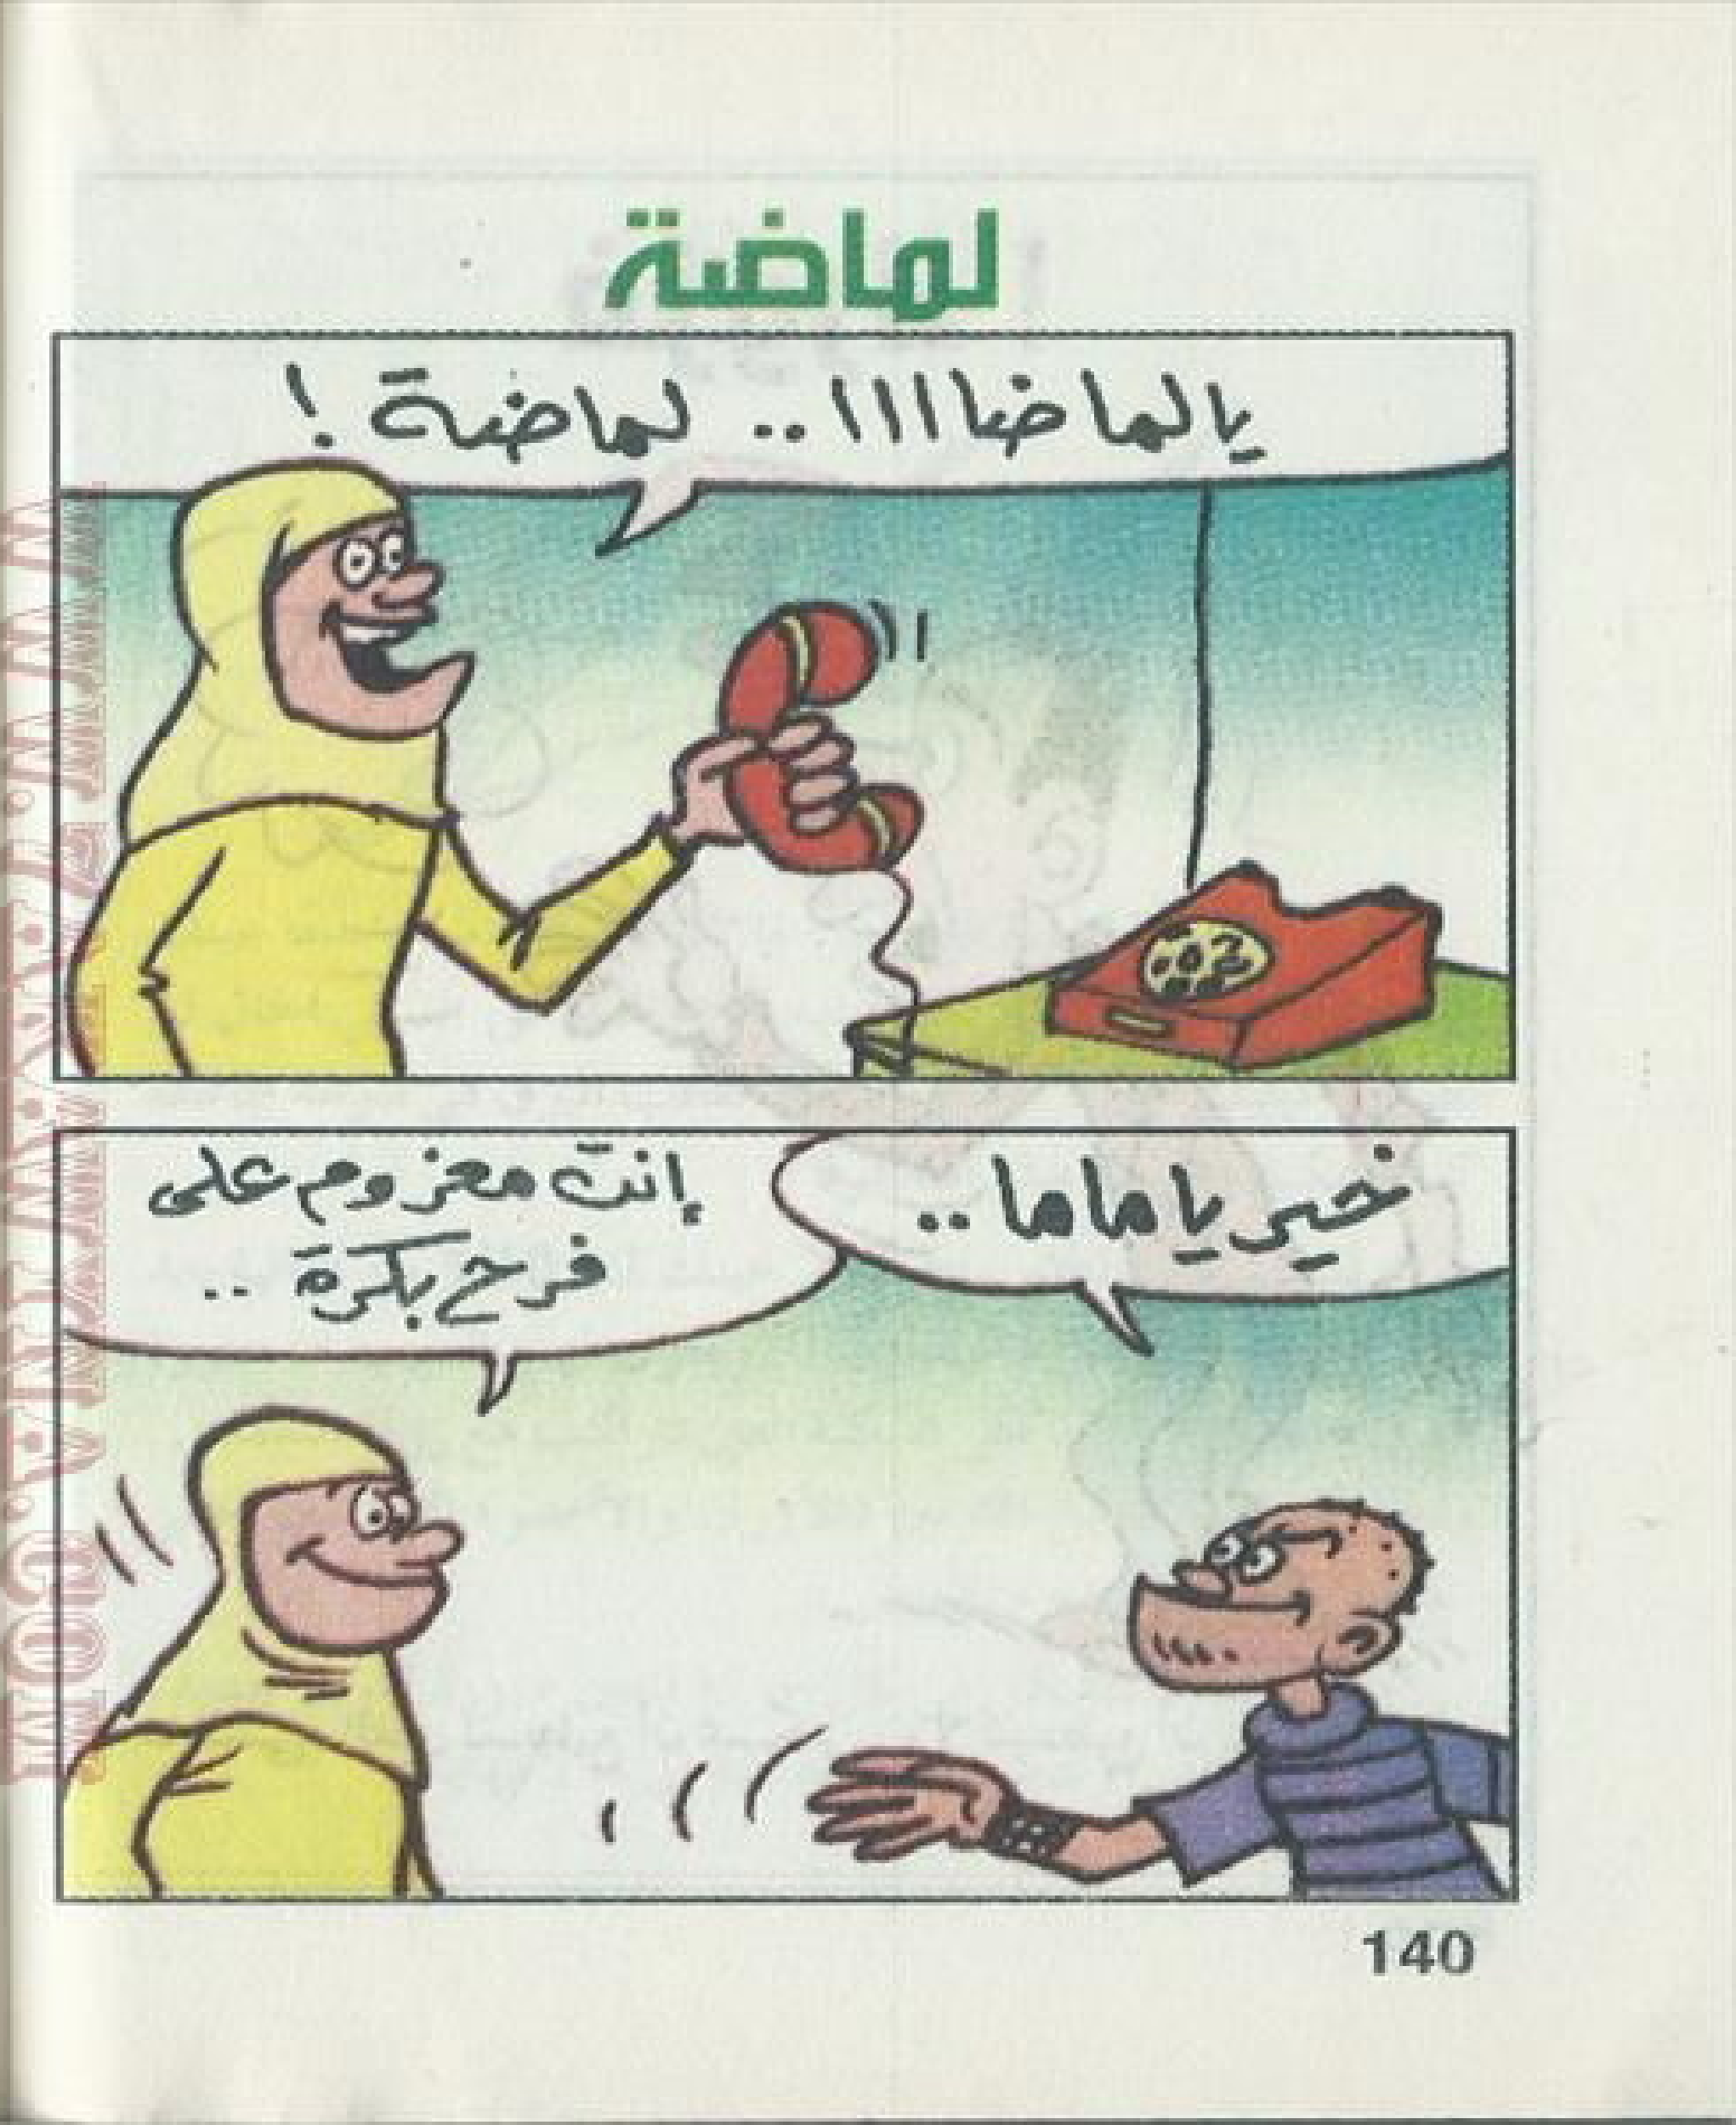 لماضة
يا لماضاااا.. لماضة!
خير يا ماما..
إنت معزوم على
فرح بكرة..
140